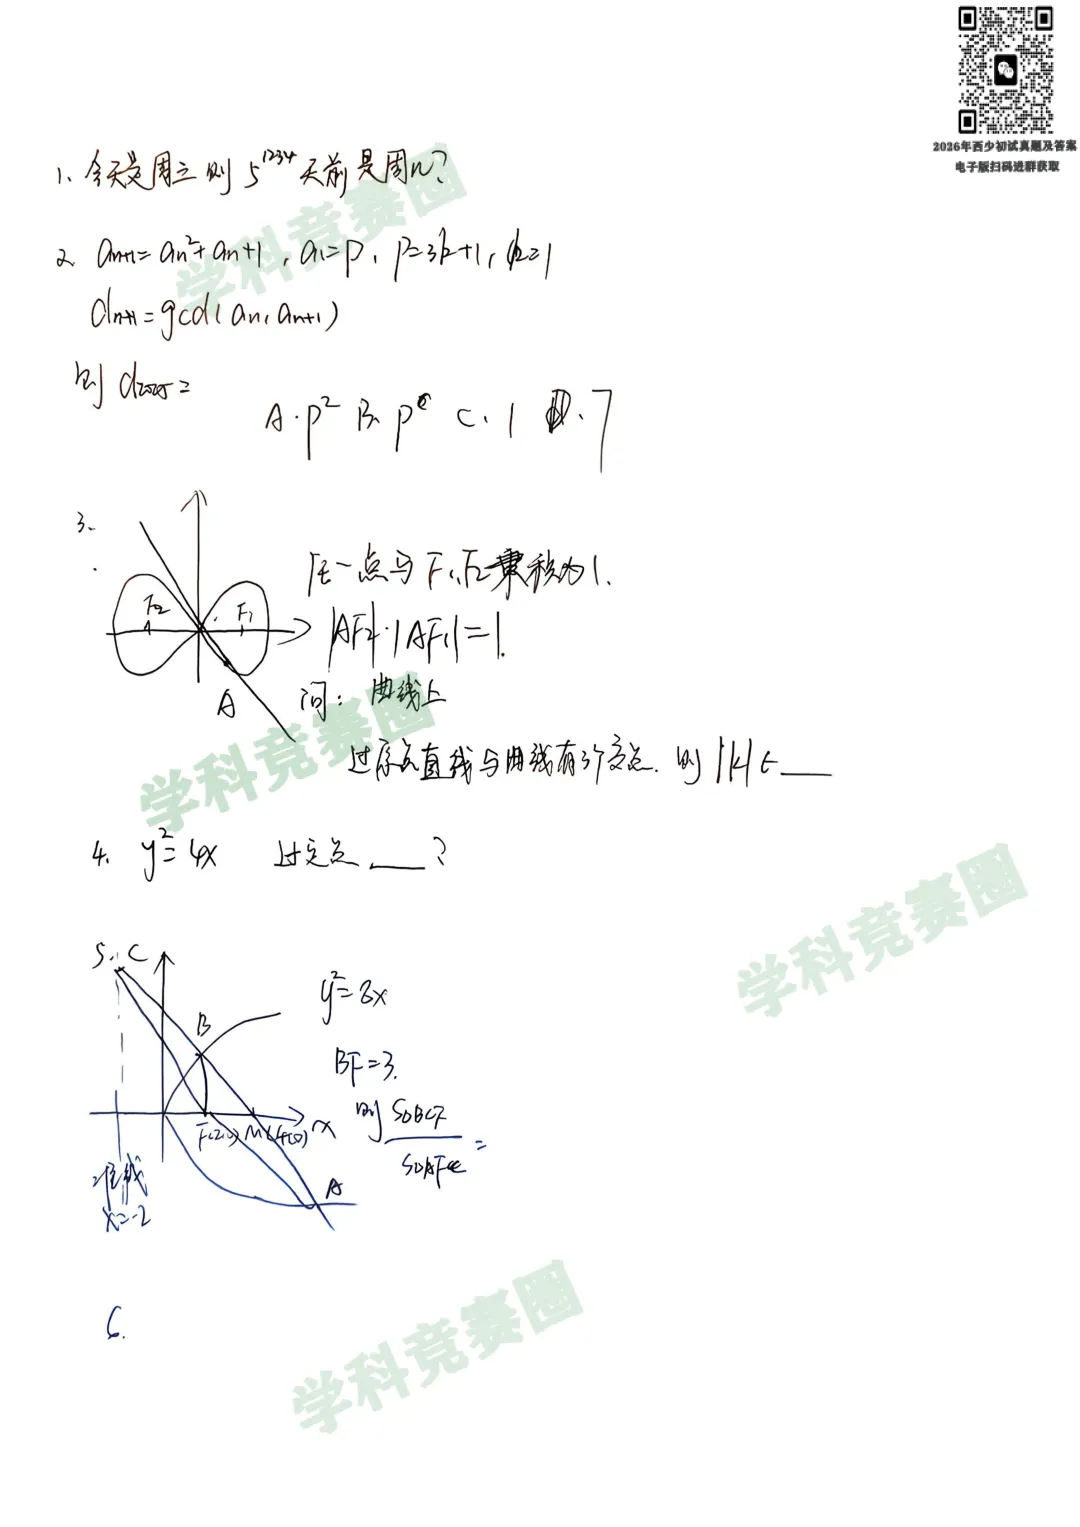 2026年西少初试真题及答案
电子版扫码进群获取
1、今天是周三则5^1234天前是周几?
2、a_{n+1}=a_n^2+a_n+1, a_1=p, p=3k+1, k=1
d_{n+1}=gcd(a_n, a_{n+1})
则 d_{2025}=
A. p^2 B. p C. 1 D. 7
3、
F2 F1
A
任一点与F1,F2乘积为1.
|AF2|·|AF1|=1.
问: 曲线上
过原点直线与曲线有3个交点. 则|k|∈___
4. y^2=4x 过定点___?
5. C
y^2=8x
B
BF=3.
则 S△BCF
S△AFC =
F(2,0) M(4,0) x
准线
x=-2
A
6.
学科竞赛圈
学科竞赛圈
学科竞赛圈
学科竞赛圈